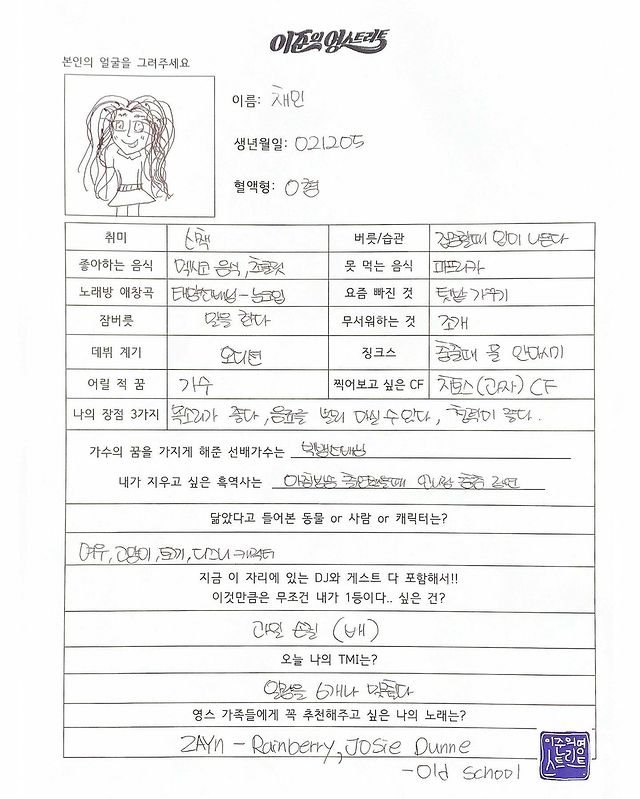 이준의 영스트리트
본인의 얼굴을 그려주세요
이름: 채민
생년월일: 021205
혈액형: O형
취미 산책 버릇/습관 집중할때 입이 나온다
좋아하는 음식 멕시코 음식, 초콜릿 못 먹는 음식 파프리카
노래방 애창곡 태양선배님-눈코입 요즘 빠진 것 텃밭 가꾸기
잠버릇 말을 한다 무서워하는 것 조개
데뷔 계기 오디션 징크스 춤출때 물 안마시기
어릴 적 꿈 가수 찍어보고 싶은 CF 치토스(과자) CF
나의 장점 3가지 목소리가 좋다, 음료를 빨리 마실 수 있다, 청력이 좋다.
가수의 꿈을 가지게 해준 선배가수는 빅뱅선배님
내가 지우고 싶은 흑역사는 아침방송 출연했을때
닮았다고 들어본 동물 or 사람 or 캐릭터는?
여우, 고양이, 토끼, 디즈니 캐릭터
지금 이 자리에 있는 DJ와 게스트 다 포함해서!!
이것만큼은 무조건 내가 1등이다.. 싶은 건?
과일 손질 (배)
오늘 나의 TMI는?
알람을 6개나 맞췄다
영스 가족들에게 꼭 추천해주고 싶은 나의 노래는?
ZAYN - Rainberry, JOSie Dunne
- Old School
이준의영
스트리트